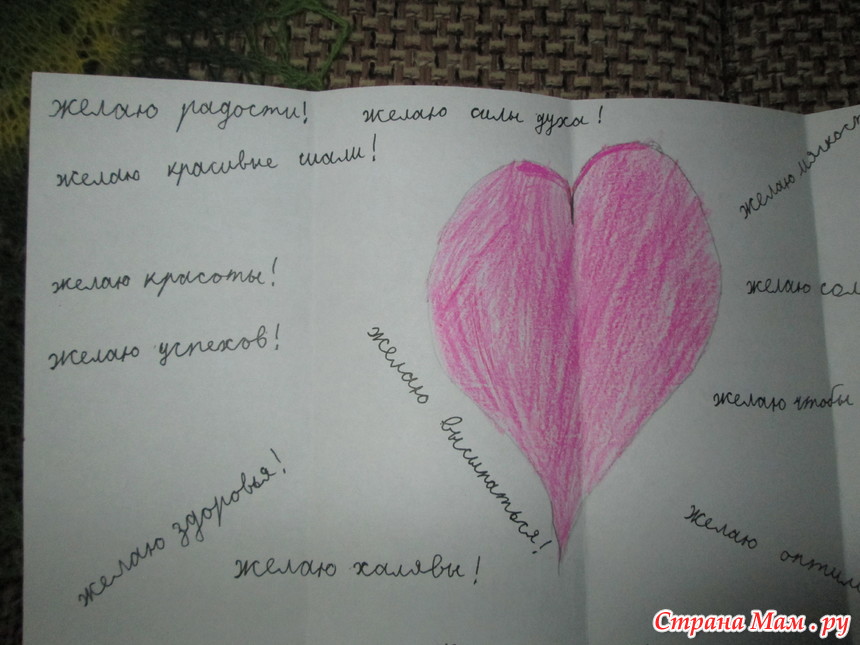 желаю радости!
желаю силы духа!
желаю красивые шали!
желаю мягкост
желаю красоты!
желаю сол
желаю успехов!
желаю высыпаться!
желаю чтобы
желаю здоровья!
желаю халявы!
желаю оптим
Страна Мам.ру